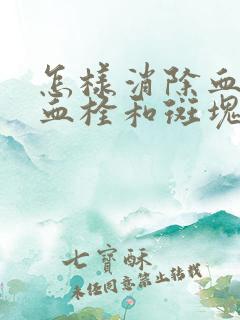 怎样消除血
血栓和斑块
七寶酥
未经同意禁止转载